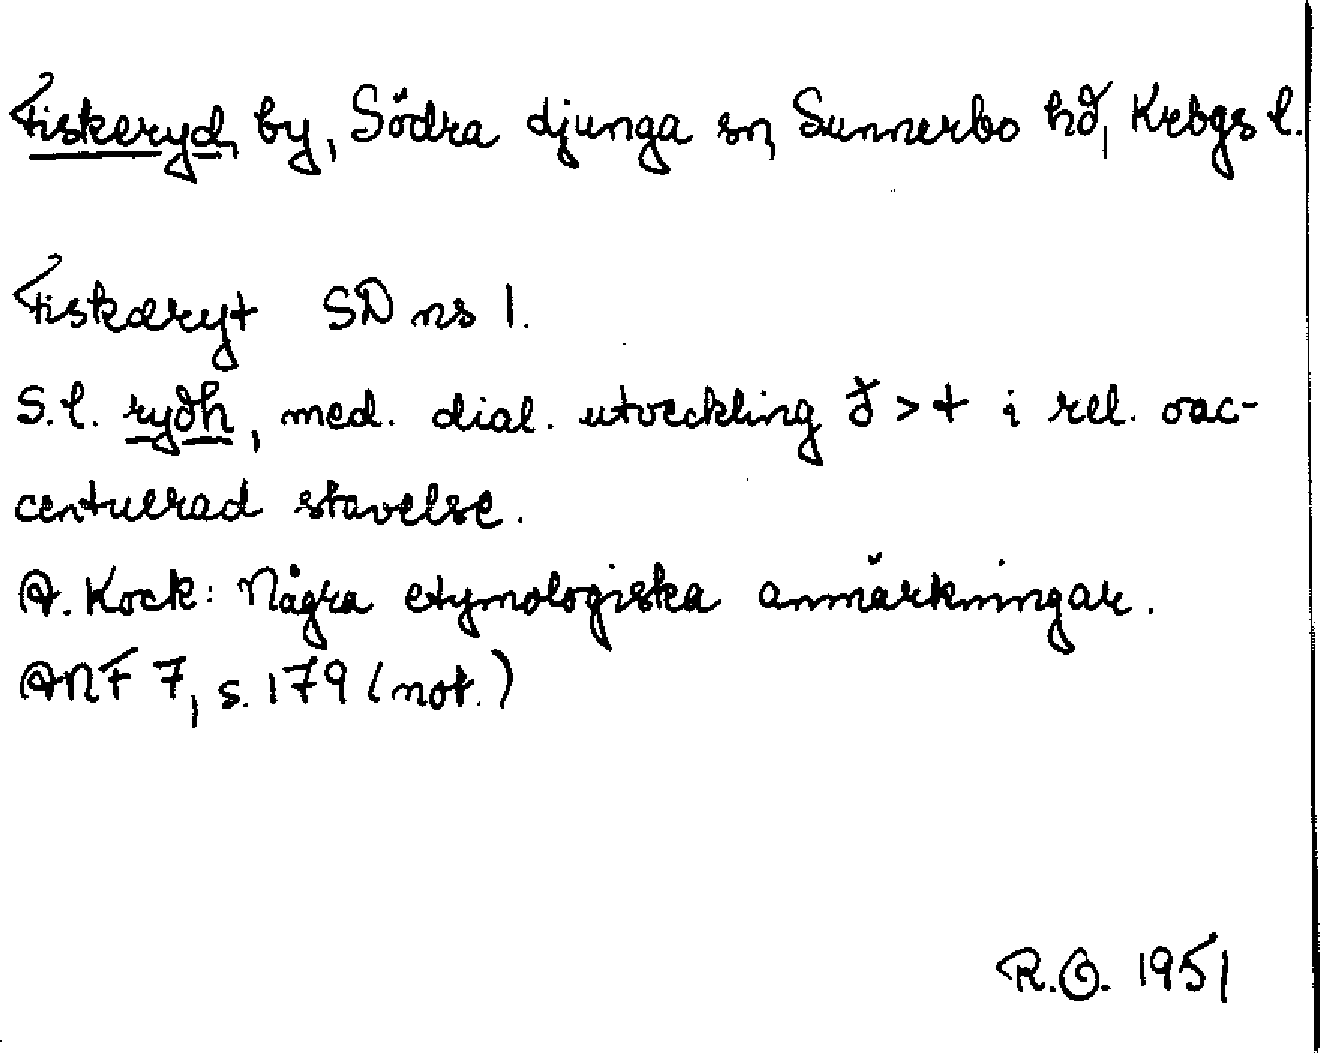 Fiskeryd, by, Södra djunga sn, Sunnerbo hd, Krbgs l.
Fiskæryt SD ns 1.
S.l. rydh, med. dial. utveckling ð > t i rel. oac-
centuerad stavelse.
A. Kock: Några etymologiska anmärkningar.
ANF 7, s. 179 (not.)
R.O. 1951